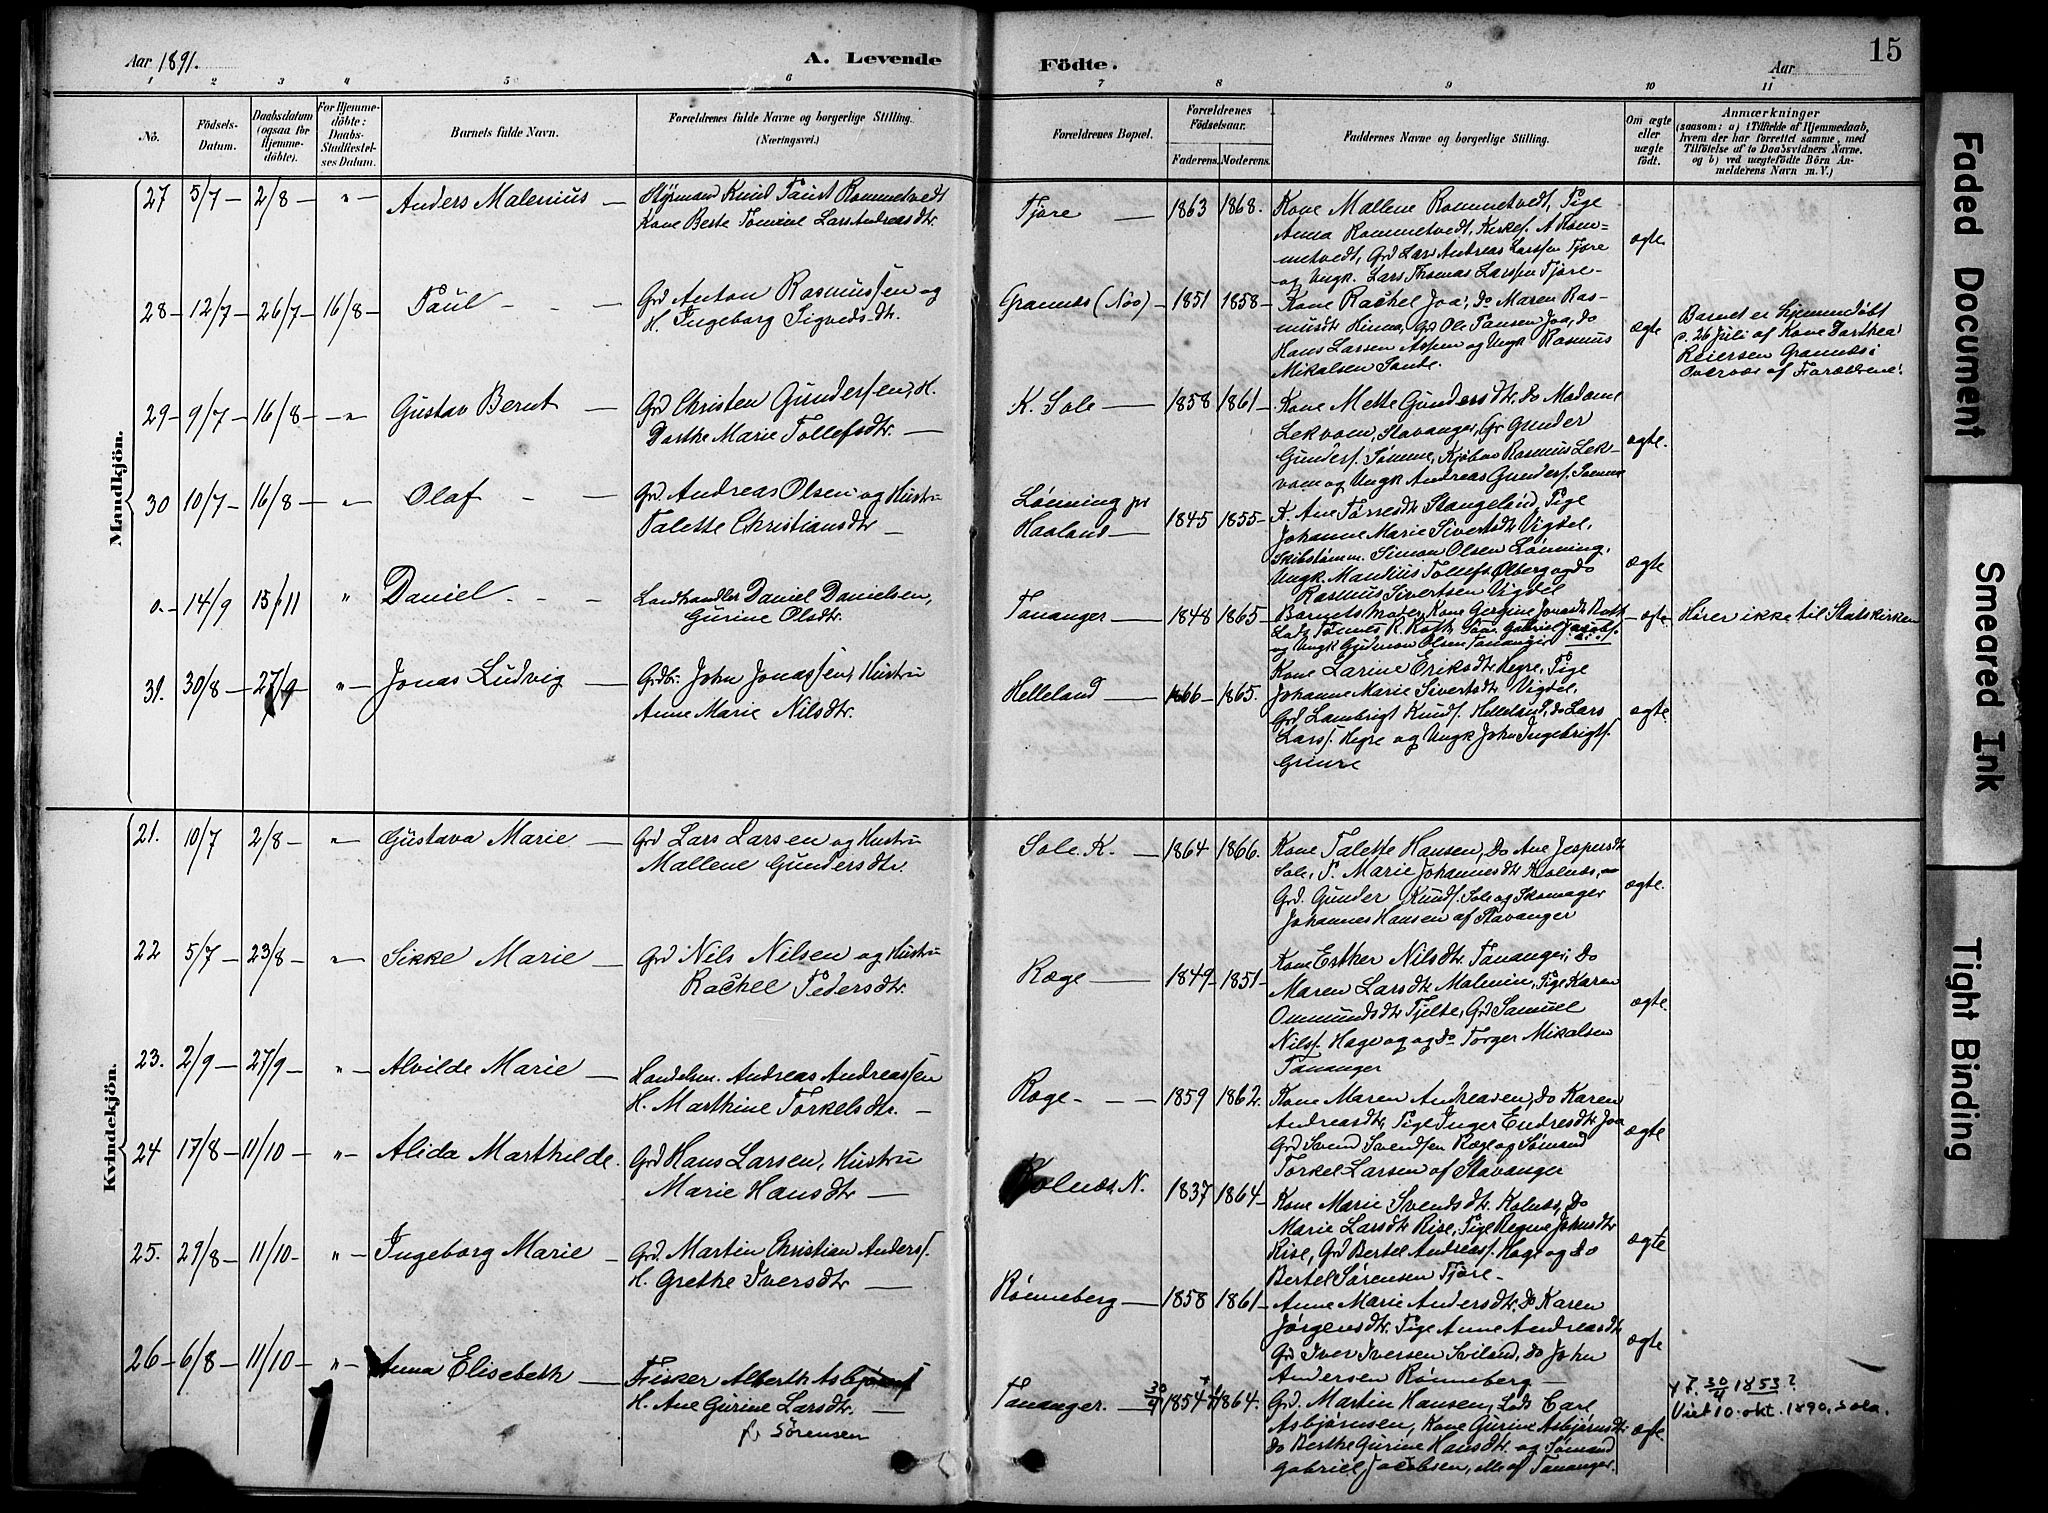 Aar 1891.
A. Levende
Födte.
Aar
15
1 2 3 4 5 6 7 8 9 10 11
No.
Födsels-Datum.
Daabsdatum (ogsaa for Hjemmedöbte).
For Hjemmedöbte: Daabs-Stadfæstelses Datum.
Barnets fulde Navn.
Forældrenes fulde Navne og borgerlige Stilling.
(Næringsvei.)
Forældrenes Bopæl.
Forældrenes Födselsaar.
Faderens. Moderens.
Faddernes Navne og borgerlige Stilling.
Om ægte eller uægte födt.
Anmærkninger
(saasom: a) i Tilfælde af Hjemmedaab,
hvem der har forrettet samme, med
Tilföielse af to Daabsvidners Navne.
og b) ved uægtefödte Börn Anmelderens Navn m. V.)
Mandkjön.
27 5/7 2/8 " Anders Malenius
Styrmand Knud Faust Rommetvedt
Kone Berte Tomine Lars Andreasdtr.
Tjore 1863 1868.
Kone Mallene Rommetvedt, Pige
Anna Rommetvedt, Kirkes. A Rommetvedt, Grd Lars Andreas Larssen Tjore
og Ungk. Lars Thomas Larssen Tjore
ægte
28 12/7 26/7 16/8 Paul
Grd Anton Rasmussen og
H. Ingeborg Sigvedsdtr.
Grannes (Nöo) 1851 1858
Kone Rachel Joa, do Maren Rasmusdtr Hinna, Grd Ole Paulsen Joa, do
Hans Larsen Aspen og Ungk Rasmus
Mikalsen Sande.
ægte
Barnet er hjemmedöbt
d. 26 Juli af Kone Dorthea
Reiersen Grannes i
Overvær af Forældrene.
29 9/7 16/8 " Gustav Bernt
Grd Christen Gundersen, H.
Dorthe Marie Tollefsdtr.
K. Sole 1858 1861
Kone Mette Gundersdtr, do Madame
Lekvam, Stavanger, Gr Gunder
Gunders. Sømme, Kjøbm Rasmus Lekvam og Ungk Andreas Gunders. Sømme
ægte.
30 10/7 16/8 " Olaf
Grd Andreas Olsen og Hustru
Talette Christiansdtr
Lönning pr
Haaland 1845 1855
K. Ane Torresdtr Stangeland, Pige
Johanne Marie Sivertsdtr Vigdel,
Skibstømm. Simon Olsen Lönning,
Ungk. Mandius Tollefs Ølberg og do
Rasmus Sivertsen Vigdel
ægte
0. 14/9 15/11 " Daniel
Landhandler Daniel Danielsen,
Gurine Olsdtr.
Tananger 1848 1865
Barnets Moder, Kone Gurine Jonasdtr Roth
Lods Tønnes R. Roth, Søm. Gabriel Jacobs.
og Ungk Gudmon Olsen Tananger
ægte
Hører ikke til Statskirken
31. 30/8 27/9 " Jonas Ludvig
Grdbr. John Jonassen, Hustru
Anne Marie Nilsdtr.
Helleland 1866 1865.
Kone Larine Eriksdtr Hegre, Pige
Johanne Marie Sivertsdtr Vigdel,
Grd. Lambrigt Knuds. Helleland, do Lars
Larss. Hegre og Ungk John Ingebrigts.
Grimre
ægte.
Kvindekjön.
21. 10/7 2/8 " Gustava Marie
Grd Lars Larsen og Hustru
Mallene Gundersdtr.
Sole K. 1864 1866.
Kone Talette Hansen, do Ane Jespersdtr
Sole, P. Marie Johannesdtr Kolnes,
Grd. Gunder Knuds. Sole og Skomager
Johannes Hansen af Stavanger
ægte.
22 5/7 23/8 " Sikke Marie
Grd Nils Nilsen og Hustru
Rachel Pedersdtr.
Ræge 1849 1851
Kone Esther Nilsdtr Tananger, do
Maren Larsdtr Malmin, Pige Karen
Ommundsdtr Tjelte, Grd Samuel
Nils. Hage og do Torger Mikalsen
Tananger
ægte.
23. 2/9 27/9 " Alvilde Marie
Handelsm. Andreas Andreassen
H. Marthine Torkelsdtr.
Rœge 1859 1862.
Kone Maren Andreasen, do Karen
Andreasdtr, Pige Inger Endresdtr Joa
Grd Svend Svendsen Ræge og Sømand
Torkel Larsen af Stavanger
ægte
24 17/8 11/10 " Alida Marthilde.
Grd Hans Larsen, Hustru
Marie Hansdtr
Kolnes, N. 1837 1864
Kone Marie Svendsdtr. Kolnes, do
Marie Larsdtr Rise, Pige Regine Johnsdtr
Rise, Grd Bertel Andreas. Hage og do
Bertel Sørensen Tjore
ægte
25. 29/8 11/10 " Ingeborg Marie
Grd. Martin Christian Anders.
H. Grethe Iversdtr
Rönneberg 1858 1861
Anne Marie Andersdtr, do Karen
Jørgensdtr, Pige Anne Andreasdtr
Grd Iver Iversen Sviland, do John
Andersen Rönneberg
ægte
26 6/8 11/10 " Anna Elisebeth
Fisker Alberth Asbjørns
H. Ane Gurine Larsdtr.
f. Sörensen
Tananger. 30/4 1854 1864.
Grd. Martin Hansen, Lods Carl
Asbjørnsen, Kone Gurine Asbjørnsdtr
do Berthe Gurine Hansdtr. og Sømand
Gabriel Jacobsen, Alle af Tananger.
ægte.
F. 30/4 1853?
Viet 10. okt. 1890. Sola.
Faded Document
Smeared Ink
Tight Binding